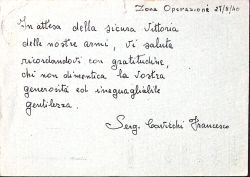 Zona Operazioni 27/8/40
In attesa della sicura vittoria
delle nostre armi, Vi saluta
ricordandovi con gratitudine,
chi non dimentica la vostra
generosità ed ineguagliabile
gentilezza.
Serg. Francesco